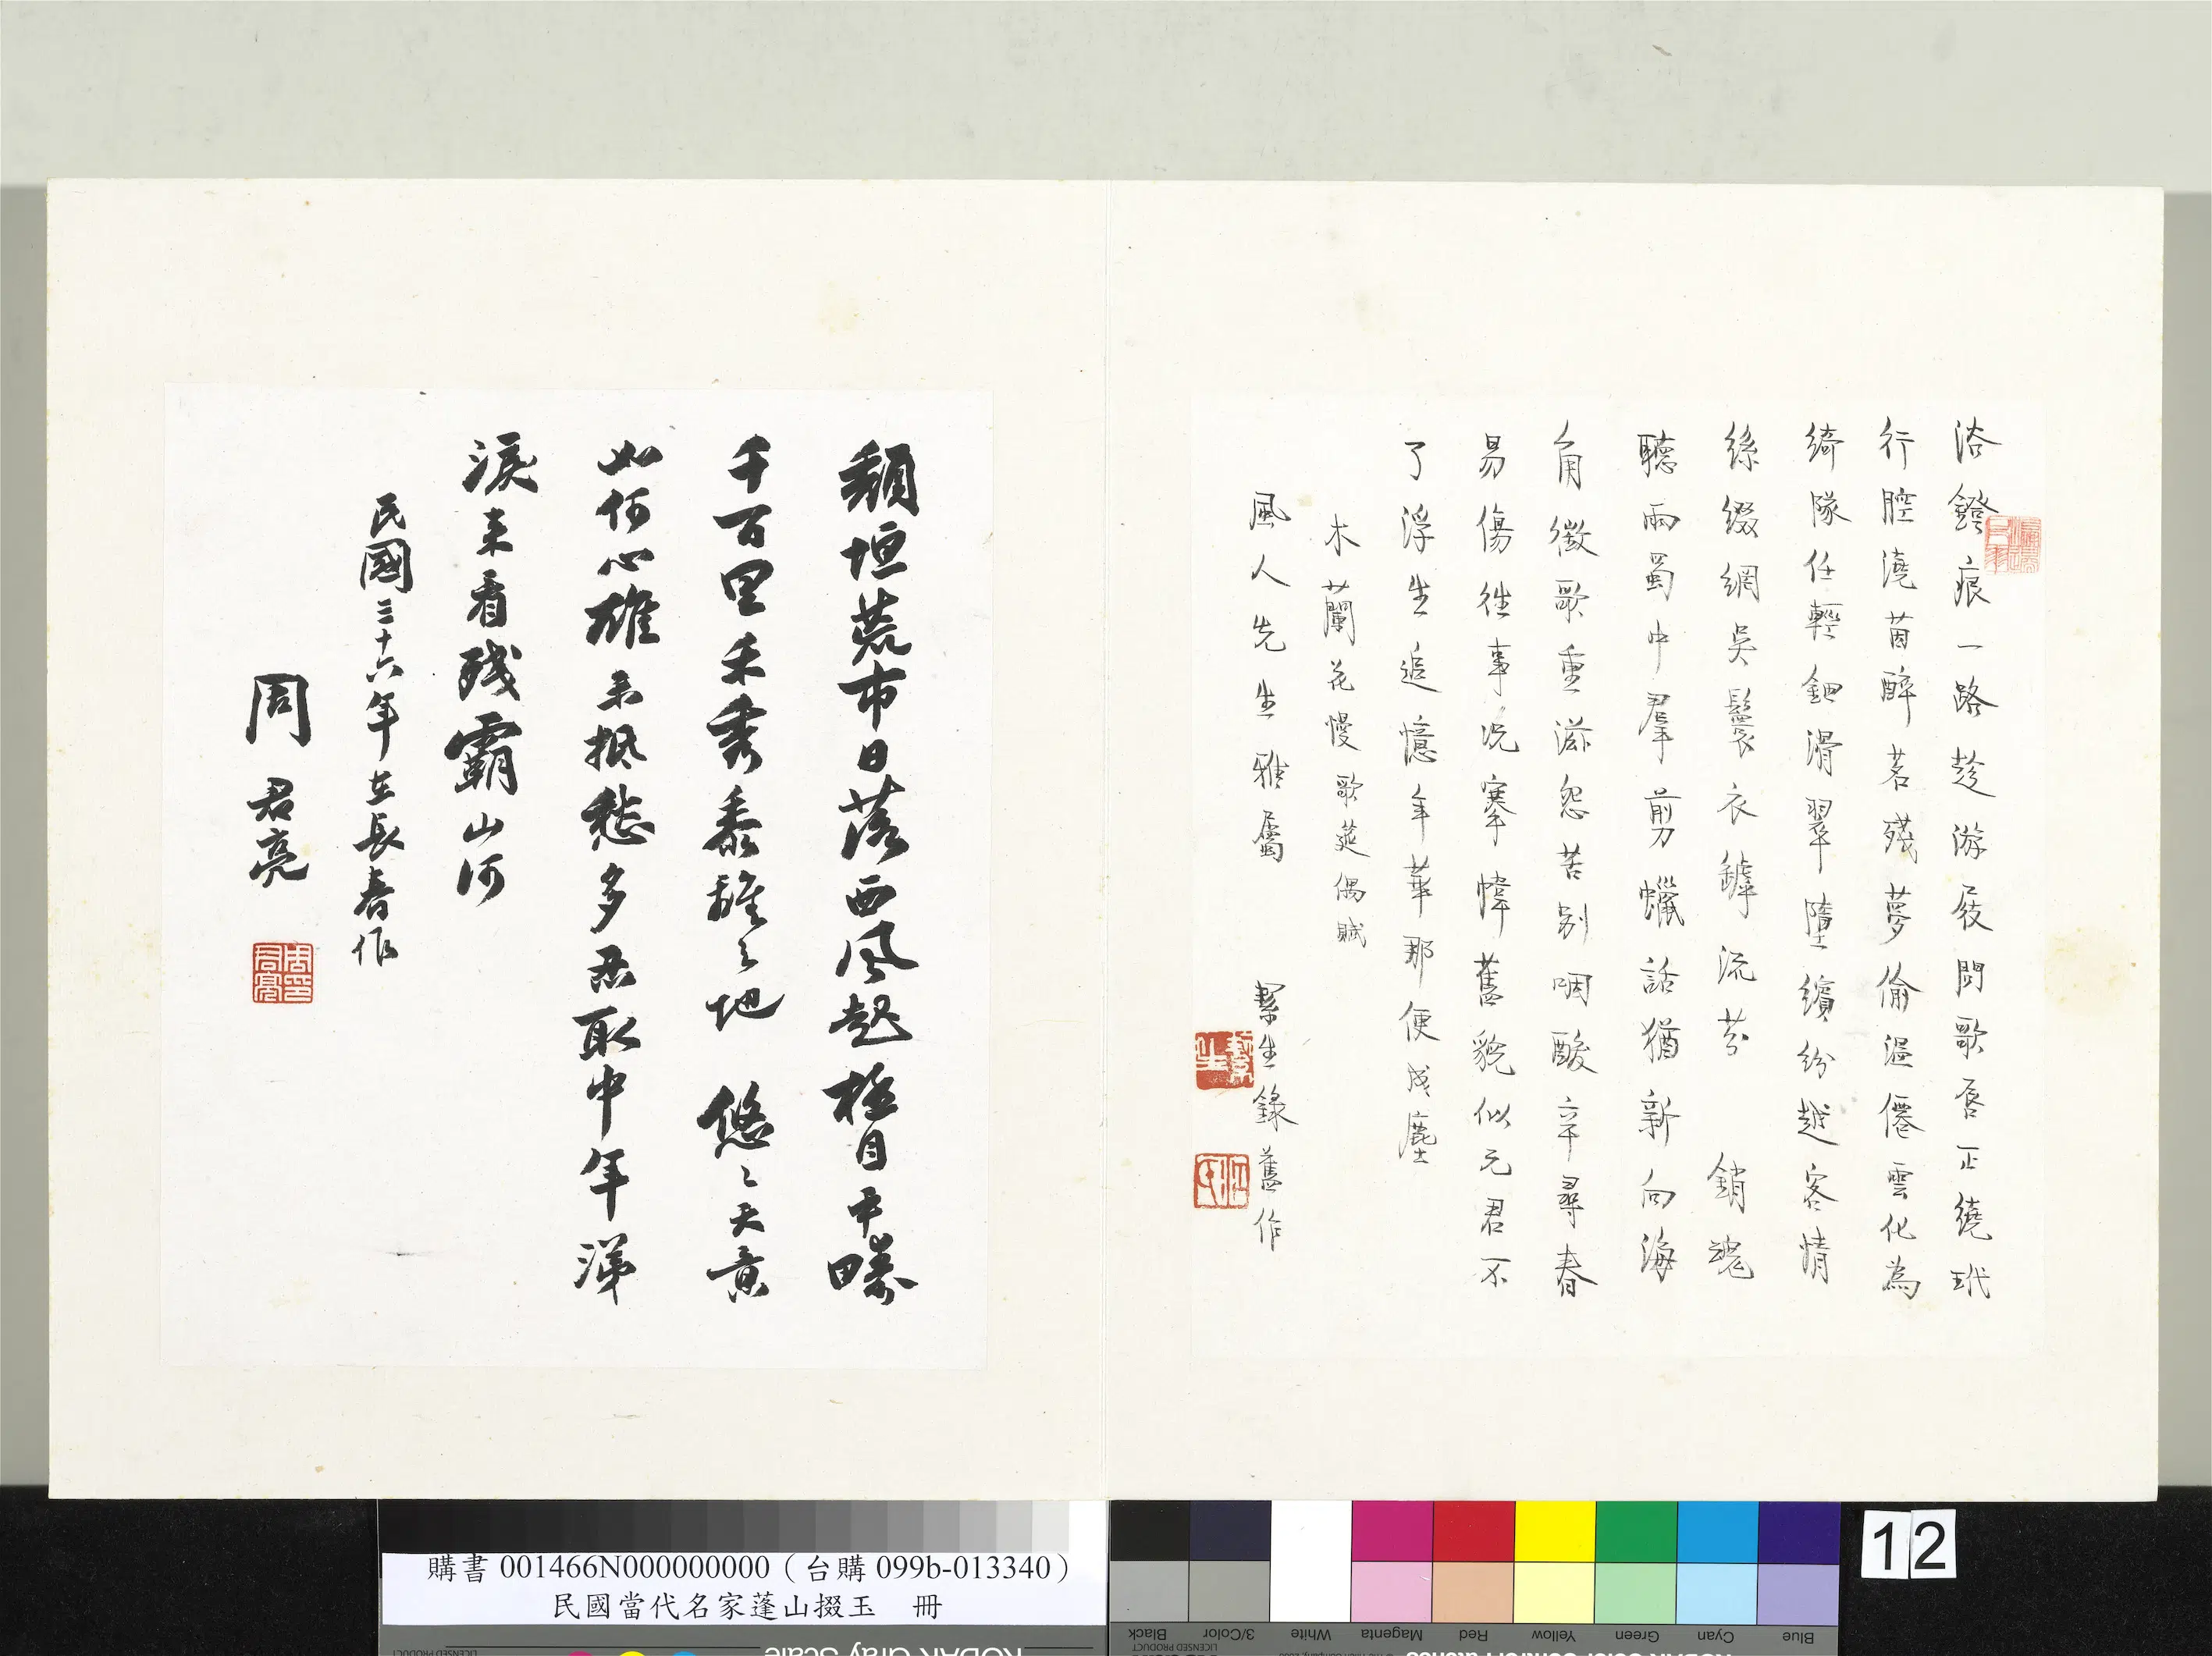 浴鐙痕一路趁游屐問歌脣正繞玳
行腔澆茵醉茗殘夢偷溫僊雲化為
綺隊任輕鈿滑翠墮繽紛越客情
絲綴網吳鬟衣罅流芬　銷魂
聽雨蜀中羣剪蠟話猶新向海
角徵歌重滋怨苦別咽酸辛尋春
易傷徃事況搴幃舊貌似元君不
了浮生追憶年華那便成塵
木蘭花慢歌莚偶賦
風人先生雅屬　絜生錄舊作
絜生
江氏
頹垣荒市日落西風起極目平疇
千百里禾秀黍離之地　悠悠天意
如何心雄未抵愁多忍取中年涕
淚來看殘霸山河
民國三十六年在長春作
周君亮
周君亮印
購書 001466N000000000（台購 099b-013340）
民國當代名家蓬山掇玉　冊
12
KODAK Gray Scale
LICENSED PRODUCT
Black
3/Color
White
Magenta
Red
Yellow
Green
Cyan
Blue